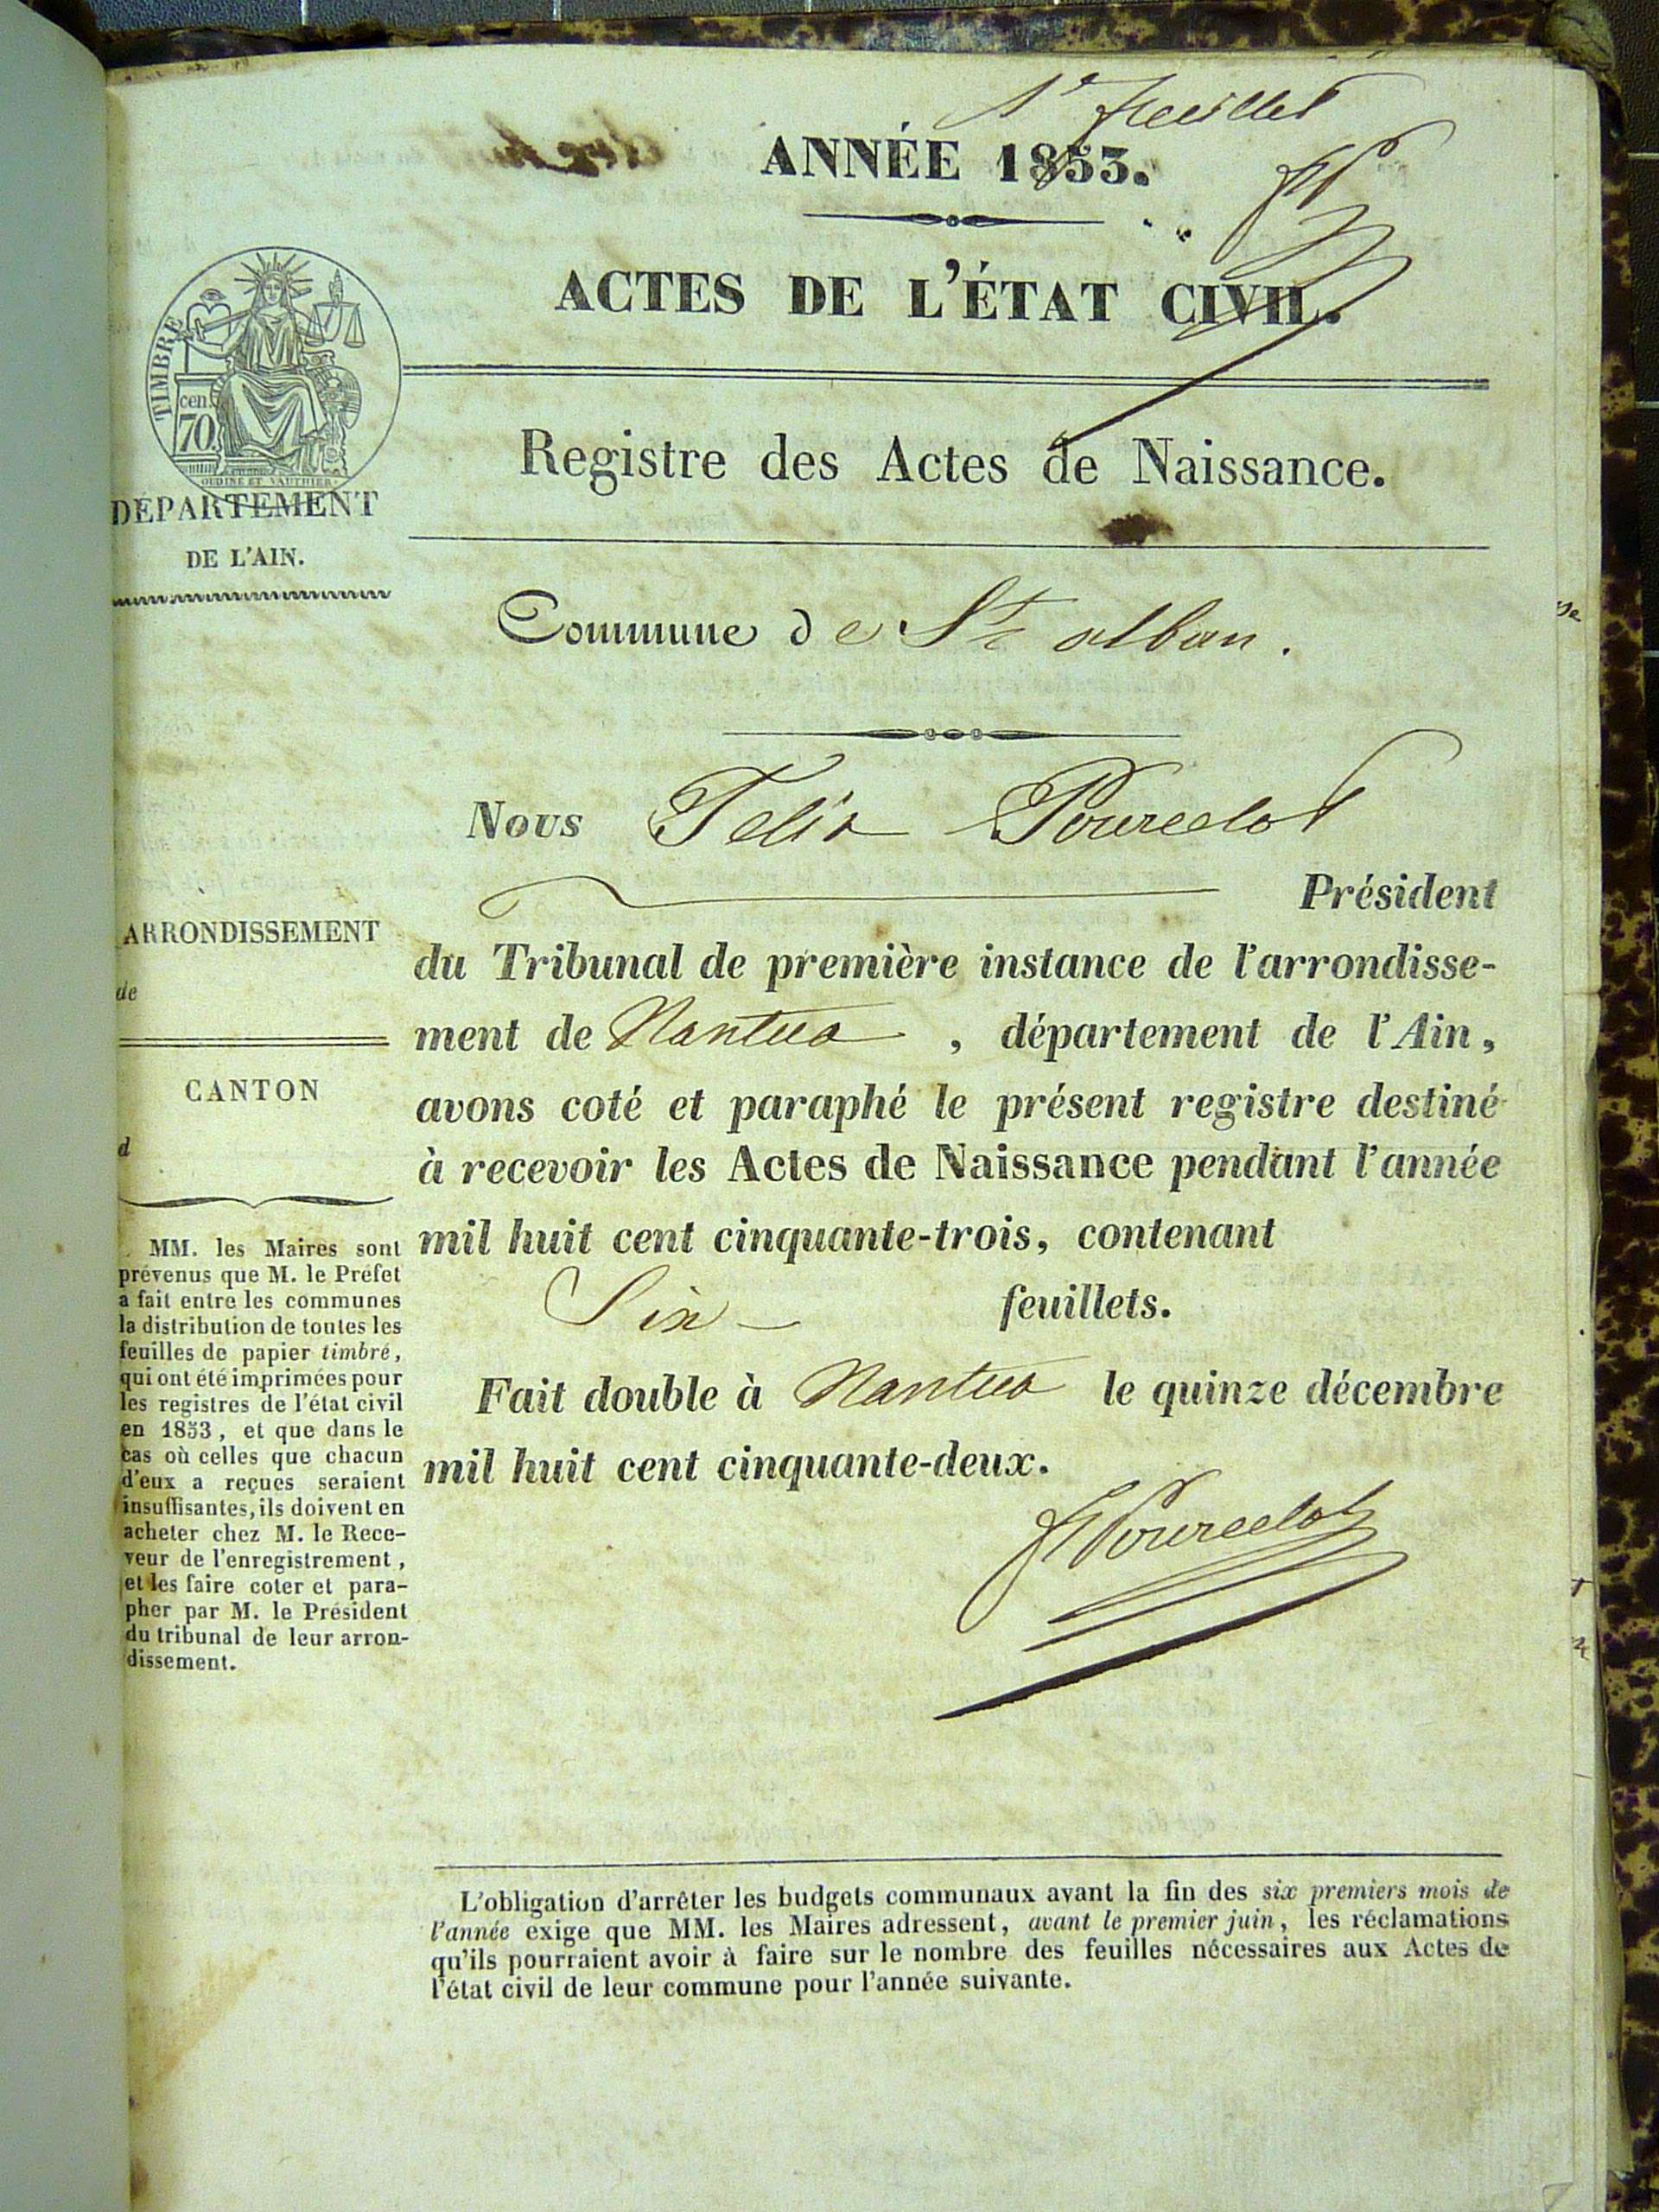 1r feuillet
ANNÉE 1853.
ACTES DE L'ÉTAT CIVIL.
TIMBRE
cen.
70
OUDINÉ ET VAUTHIER
Registre des Actes de Naissance.
DÉPARTEMENT
DE L'AIN.
Commune de St alban.
Nous Felix Pourcelot
Président
du Tribunal de première instance de l'arrondisse-
ment de Nantua, département de l'Ain,
avons coté et paraphé le présent registre destiné
à recevoir les Actes de Naissance pendant l'année
mil huit cent cinquante-trois, contenant
Six feuillets.
Fait double à Nantua le quinze décembre
mil huit cent cinquante-deux.
Pourcelot
ARRONDISSEMENT
de
CANTON
d
MM. les Maires sont
prévenus que M. le Préfet
a fait entre les communes
la distribution de toutes les
feuilles de papier timbré,
qui ont été imprimées pour
les registres de l'état civil
en 1853, et que dans le
cas où celles que chacun
d'eux a reçues seraient
insuffisantes, ils doivent en
acheter chez M. le Rece-
veur de l'enregistrement,
et les faire coter et para-
pher par M. le Président
du tribunal de leur arron-
dissement.
L'obligation d'arrêter les budgets communaux avant la fin des six premiers mois de
l'année exige que MM. les Maires adressent, avant le premier juin, les réclamations
qu'ils pourraient avoir à faire sur le nombre des feuilles nécessaires aux Actes de
l'état civil de leur commune pour l'année suivante.